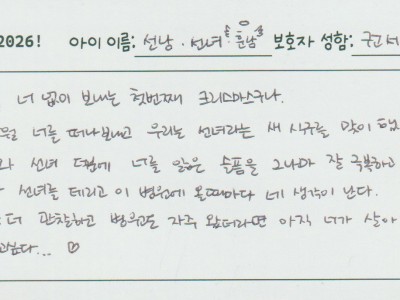 2026! 아이 이름: 선남 · 선녀 · 훈남 보호자 성함:
너 없이 보내는 첫번째 크리스마스구나.
너를 떠나보내고 우리는 선녀라는 새 식구를 맞이
선녀 덕에 너를 잃은 슬픔을 그나마 잘 극복하고
선녀를 데리고 이 병원에 올때마다 네 생각이 난다.
더 관찰하고 병원도 자주 왔더라면 아직 너가 살아
♡